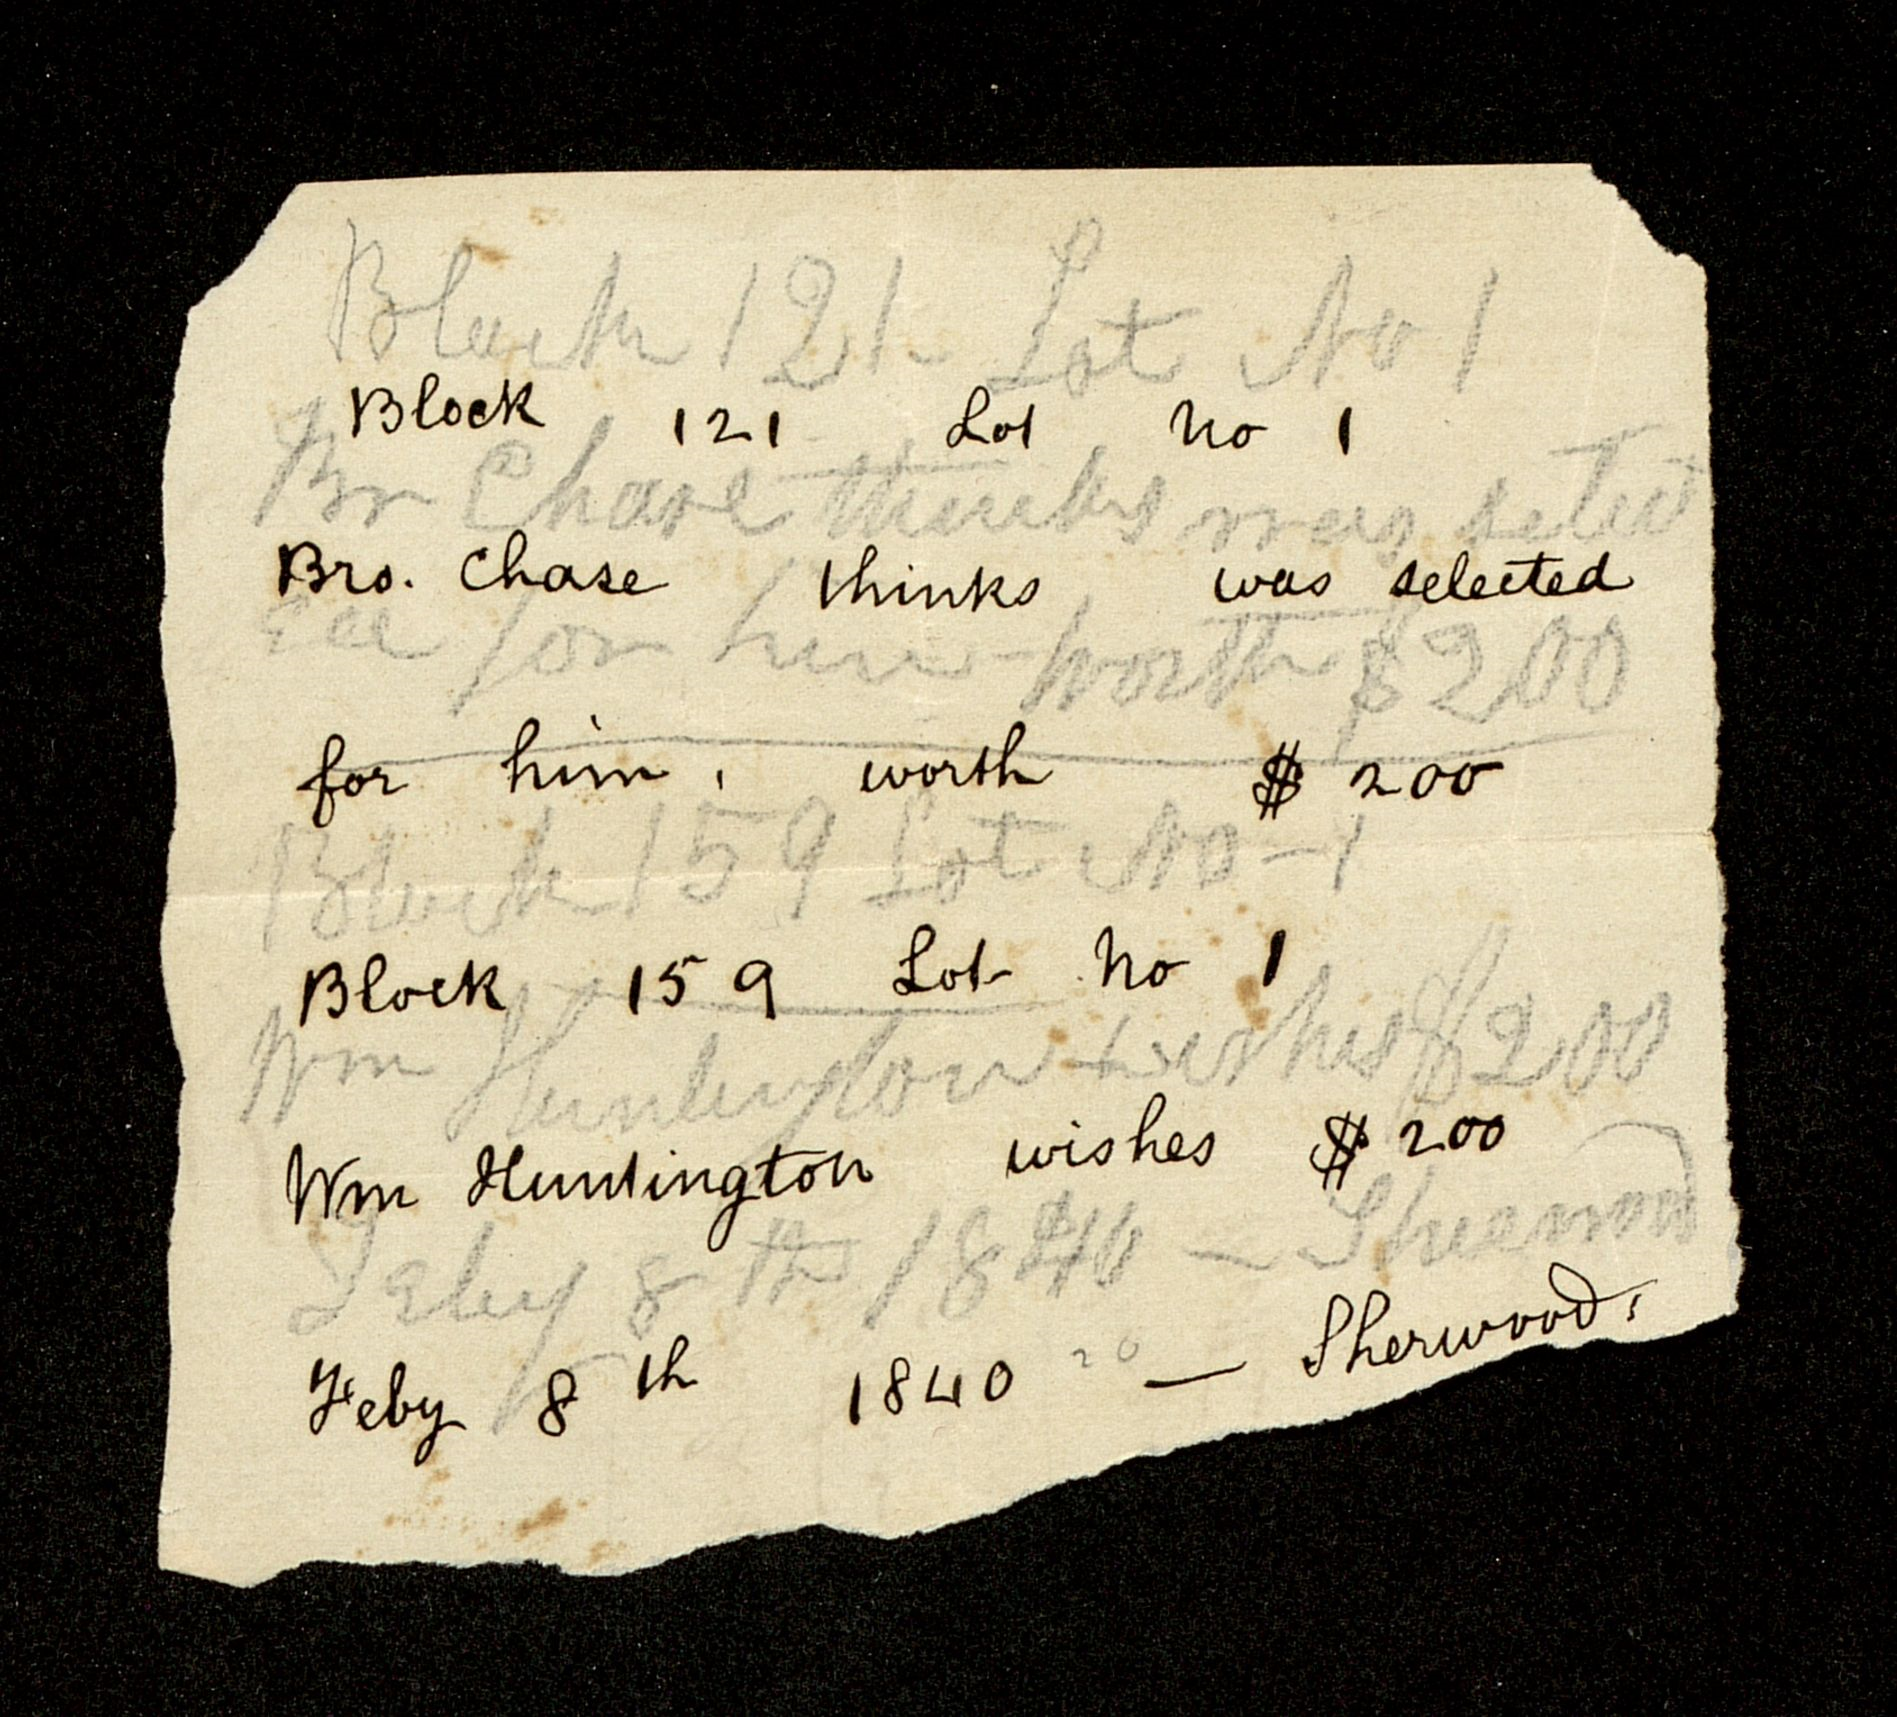 Block 121 Lot No 1
Block 121 Lot No 1
Br Chase thinks was select
Bro. Chase thinks was selected
ed for him - worth $200
for him, worth $200
Block 159 Lot No - 1
Block 159 Lot No 1
Wm Huntington wishes $200
Wm Huntington wishes $200
Feby 8th 1840 — Sherwood
Feby 8th 1840 20 — Sherwood.